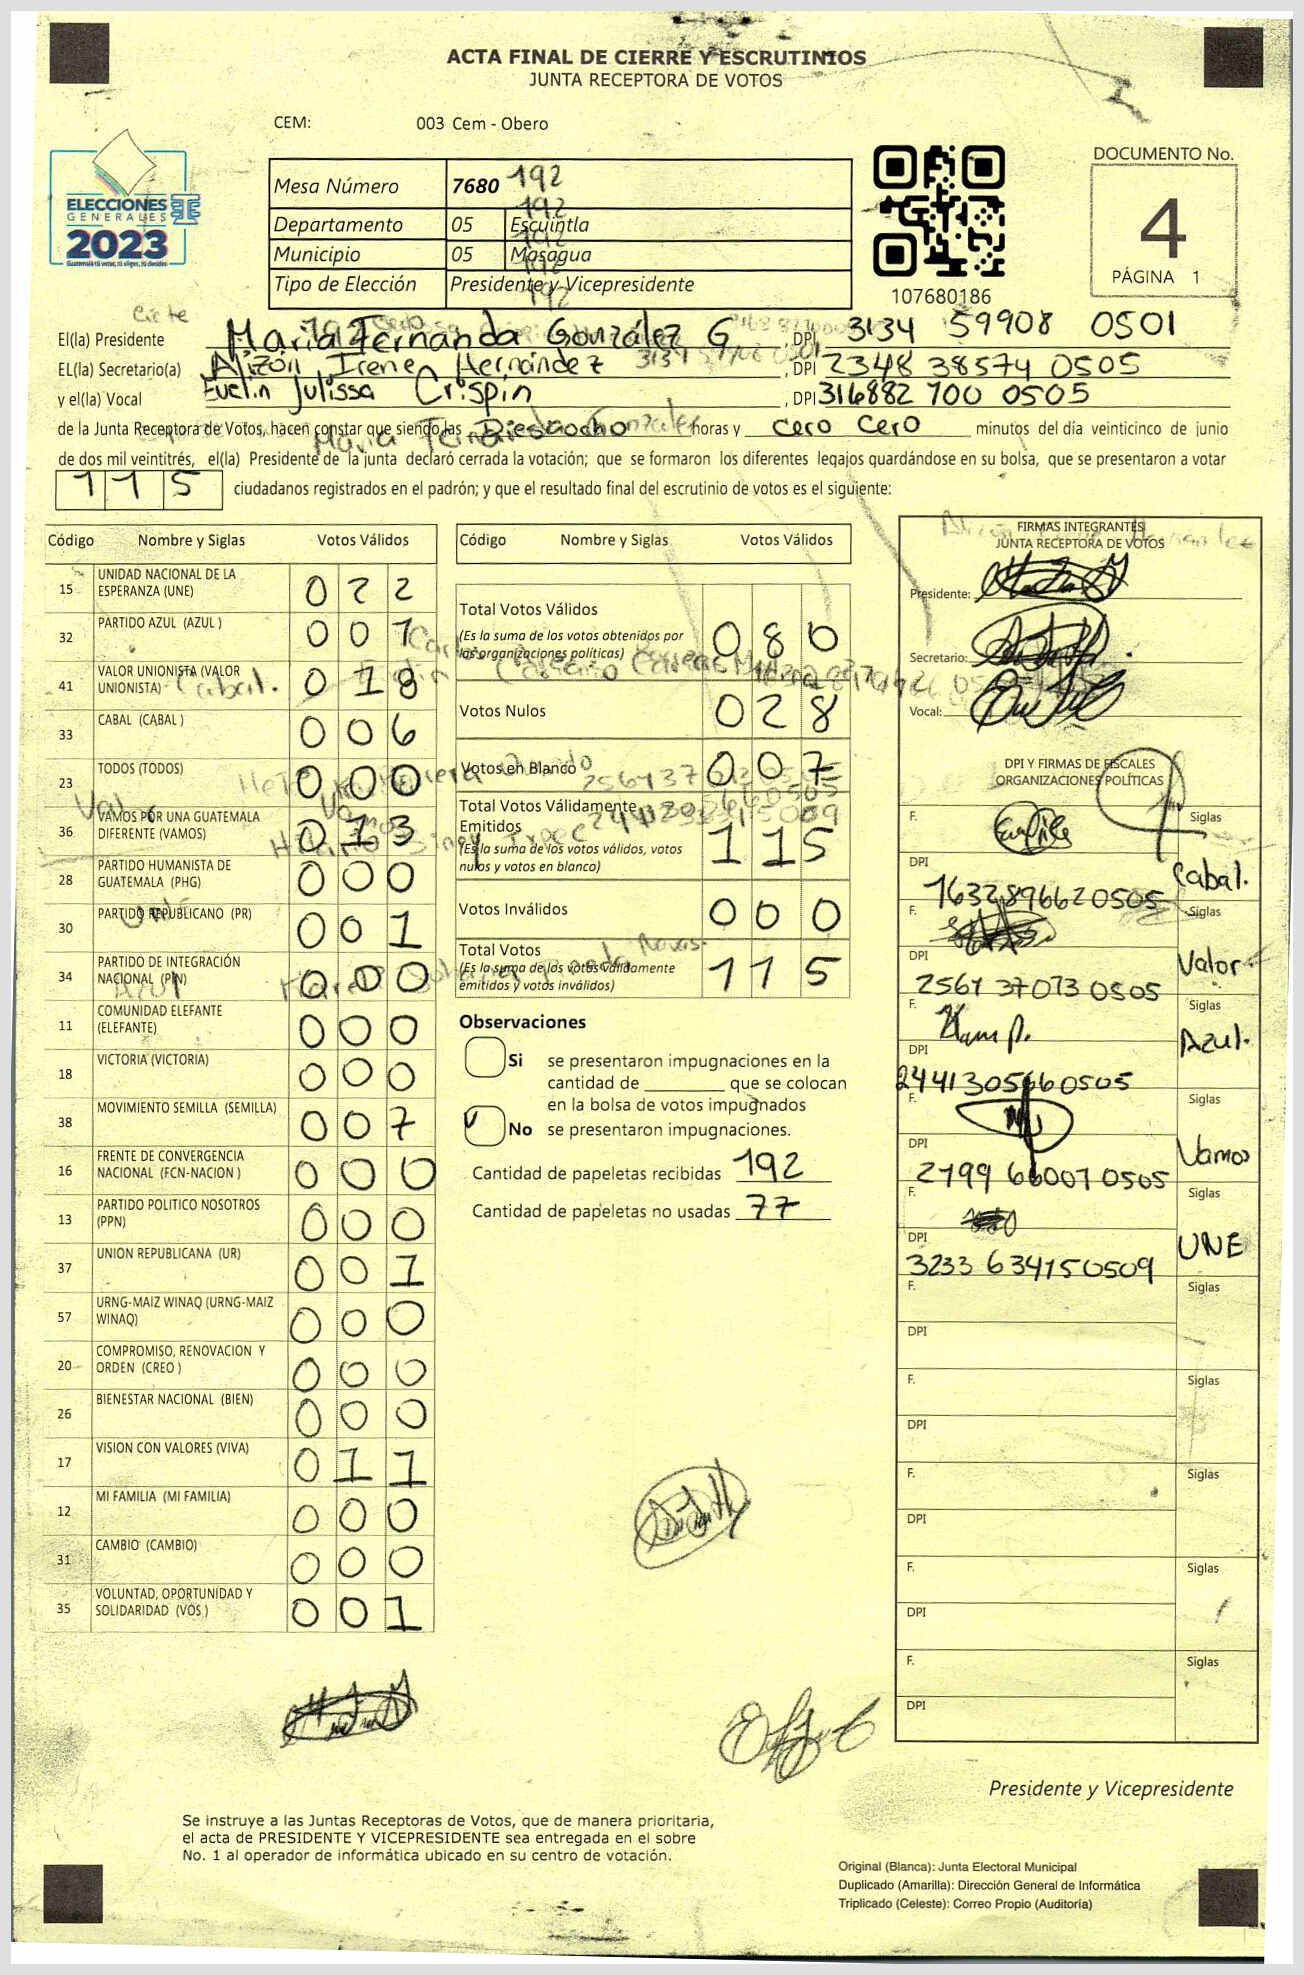 ACTA FINAL DE CIERRE Y ESCRUTINIOS
JUNTA RECEPTORA DE VOTOS
CEM: 003 Cem - Obero
ELECCIONES
GENERALES
2023
Guatemala tú votas, tú eliges, tú decides
Mesa Número 7680 192
192
Departamento 05 Escuintla
192
Municipio 05 Masagua
192
Tipo de Elección Presidente y Vicepresidente
192
107680186
DOCUMENTO No.
4
PÁGINA 1
El(la) Presidente María Fernanda González G , DPI 3134 59908 0501
EL(la) Secretario(a) Alizón Irene Hernández , DPI 2348 38574 0505
y el(la) Vocal Evelin Julissa Crispin , DPI 316882 700 0505
de la Junta Receptora de Votos, hacen constar que siendo las Diesiocho horas y cero cero minutos del día veinticinco de junio
de dos mil veintitrés, el(la) Presidente de la junta declaró cerrada la votación; que se formaron los diferentes legajos guardándose en su bolsa, que se presentaron a votar
115 ciudadanos registrados en el padrón; y que el resultado final del escrutinio de votos es el siguiente:
Código Nombre y Siglas Votos Válidos
15 UNIDAD NACIONAL DE LA ESPERANZA (UNE) 0 2 2
32 PARTIDO AZUL (AZUL ) 0 0 1
41 VALOR UNIONISTA (VALOR UNIONISTA) 0 1 8
33 CABAL (CABAL ) 0 0 6
23 TODOS (TODOS) 0 0 0
36 VAMOS POR UNA GUATEMALA DIFERENTE (VAMOS) 0 1 3
28 PARTIDO HUMANISTA DE GUATEMALA (PHG) 0 0 0
30 PARTIDO REPUBLICANO (PR) 0 0 1
34 PARTIDO DE INTEGRACIÓN NACIONAL (PIN) 0 0 0
11 COMUNIDAD ELEFANTE (ELEFANTE) 0 0 0
18 VICTORIA (VICTORIA) 0 0 0
38 MOVIMIENTO SEMILLA (SEMILLA) 0 0 7
16 FRENTE DE CONVERGENCIA NACIONAL (FCN-NACION ) 0 0 0
13 PARTIDO POLITICO NOSOTROS (PPN) 0 0 0
37 UNION REPUBLICANA (UR) 0 0 1
57 URNG-MAIZ WINAQ (URNG-MAIZ WINAQ) 0 0 0
20 COMPROMISO, RENOVACION Y ORDEN (CREO ) 0 0 0
26 BIENESTAR NACIONAL (BIEN) 0 0 0
17 VISION CON VALORES (VIVA) 0 1 1
12 MI FAMILIA (MI FAMILIA) 0 0 0
31 CAMBIO (CAMBIO) 0 0 0
35 VOLUNTAD, OPORTUNIDAD Y SOLIDARIDAD (VOS ) 0 0 1
Código Nombre y Siglas Votos Válidos
Total Votos Válidos
(Es la suma de los votos obtenidos por
las organizaciones políticas) 0 8 0
Votos Nulos 0 2 8
Votos en Blanco 0 0 7
Total Votos Válidamente
Emitidos
(Es la suma de los votos válidos, votos
nulos y votos en blanco) 1 1 5
Votos Inválidos 0 0 0
Total Votos
(Es la suma de los votos válidamente
emitidos y votos inválidos) 1 1 5
Observaciones
Si se presentaron impugnaciones en la
cantidad de ________ que se colocan
en la bolsa de votos impugnados
No se presentaron impugnaciones.
Cantidad de papeletas recibidas 192
Cantidad de papeletas no usadas 77
FIRMAS INTEGRANTES
JUNTA RECEPTORA DE VOTOS
Presidente:
Secretario:
Vocal:
DPI Y FIRMAS DE FISCALES
ORGANIZACIONES POLÍTICAS
F. Siglas
DPI 1632896620505 Cabal.
F. Siglas
DPI 2567 37073 0505 Valor
F. Siglas
DPI 2441305660505 Azul.
F. Siglas
DPI 2799 66007 0505 Vamos
F. Siglas
DPI 3233 634150509 UNE
F. Siglas
DPI
F. Siglas
DPI
F. Siglas
DPI
F. Siglas
DPI
F. Siglas
DPI
Presidente y Vicepresidente
Se instruye a las Juntas Receptoras de Votos, que de manera prioritaria,
el acta de PRESIDENTE Y VICEPRESIDENTE sea entregada en el sobre
No. 1 al operador de informática ubicado en su centro de votación.
Original (Blanca): Junta Electoral Municipal
Duplicado (Amarilla): Dirección General de Informática
Triplicado (Celeste): Correo Propio (Auditoría)